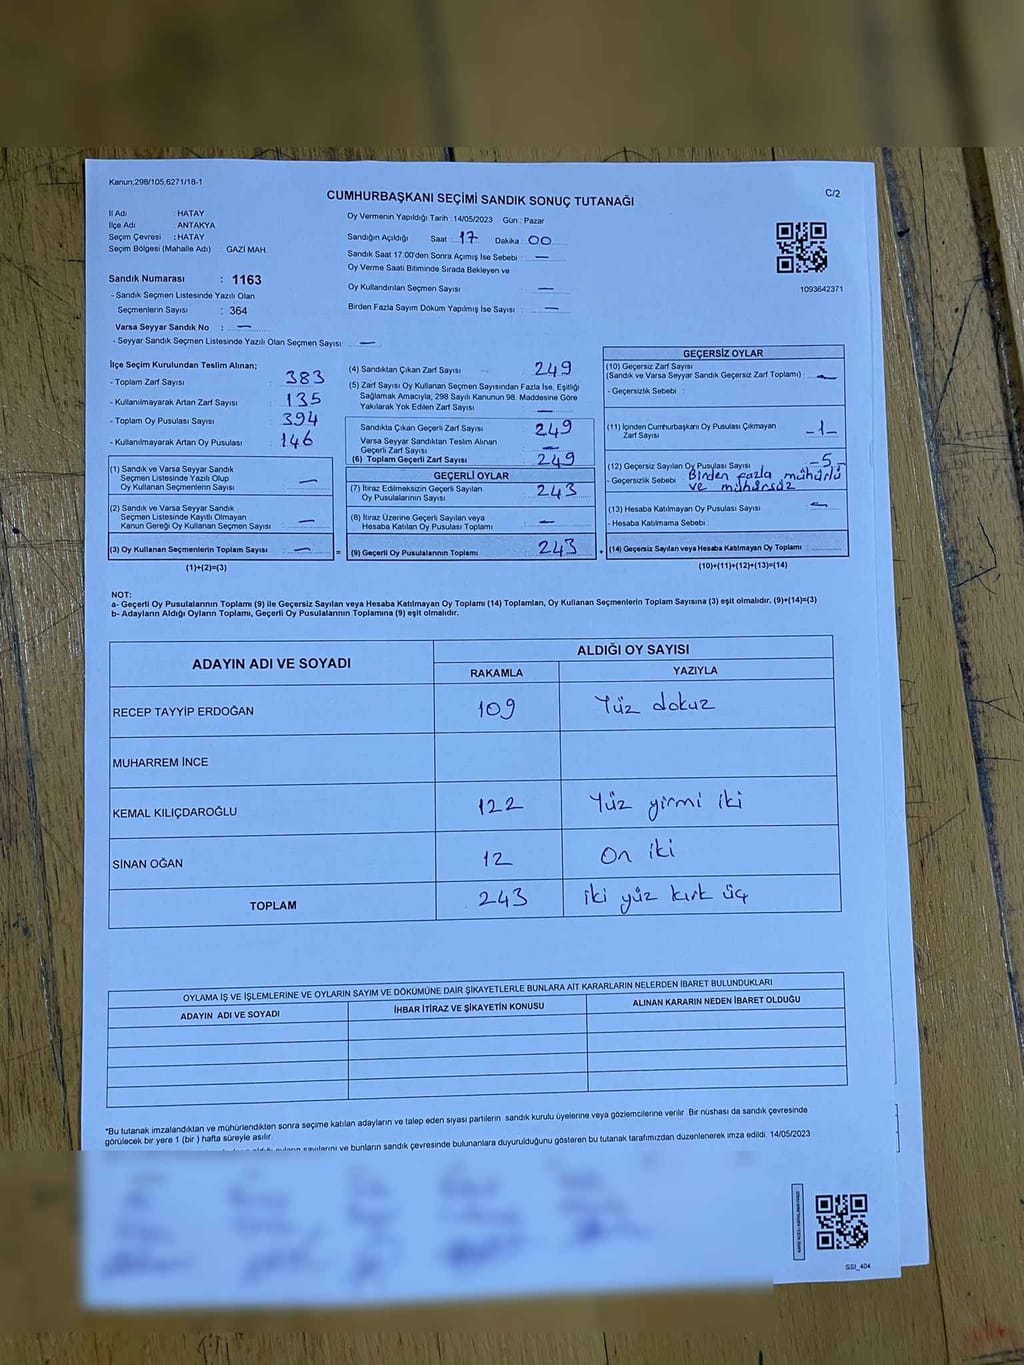 Kanun;298/105,6271/18-1
C/2
CUMHURBAŞKANI SEÇİMİ SANDIK SONUÇ TUTANAĞI
İl Adı : HATAY
İlçe Adı : ANTAKYA
Seçim Çevresi : HATAY
Seçim Bölgesi (Mahalle Adı) : GAZİ MAH.
Sandık Numarası : 1163
- Sandık Seçmen Listesinde Yazılı Olan
Seçmenlerin Sayısı : 364
Varsa Seyyar Sandık No : —
- Seyyar Sandık Seçmen Listesinde Yazılı Olan Seçmen Sayısı: —
Oy Vermenin Yapıldığı Tarih : 14/05/2023 Gün : Pazar
Sandığın Açıldığı Saat : 17 Dakika : 00
Sandık Saat 17:00'den Sonra Açımış İse Sebebi : —
Oy Verme Saati Bitiminde Sırada Bekleyen ve
Oy Kullandırılan Seçmen Sayısı : —
Birden Fazla Sayım Döküm Yapılmış İse Sayısı : —
1093642371
İlçe Seçim Kurulundan Teslim Alınan;
- Toplam Zarf Sayısı : 383
- Kullanılmayarak Artan Zarf Sayısı : 135
- Toplam Oy Pusulası Sayısı : 394
- Kullanılmayarak Artan Oy Pusulası : 146
(1) Sandık ve Varsa Seyyar Sandık
Seçmen Listesinde Yazılı Olup
Oy Kullanan Seçmenlerin Sayısı —
(2) Sandık ve Varsa Seyyar Sandık
Seçmen Listesinde Kayıtlı Olmayan
Kanun Gereği Oy Kullanan Seçmen Sayısı —
(3) Oy Kullanan Seçmenlerin Toplam Sayısı —
(1)+(2)=(3)
=
(4) Sandıktan Çıkan Zarf Sayısı : 249
(5) Zarf Sayısı Oy Kullanan Seçmen Sayısından Fazla İse, Eşitliği
Sağlamak Amacıyla, 298 Sayılı Kanunun 98. Maddesine Göre
Yakılarak Yok Edilen Zarf Sayısı : —
Sandıkta Çıkan Geçerli Zarf Sayısı : 249
Varsa Seyyar Sandıktan Teslim Alınan
Geçerli Zarf Sayısı : —
(6) Toplam Geçerli Zarf Sayısı : 249
GEÇERLİ OYLAR
(7) İtiraz Edilmeksizin Geçerli Sayılan
Oy Pusulalarının Sayısı : 243
(8) İtiraz Üzerine Geçerli Sayılan veya
Hesaba Katılan Oy Pusulası Toplamı : —
(9) Geçerli Oy Pusulalarının Toplamı 243
+
GEÇERSİZ OYLAR
(10) Geçersiz Zarf Sayısı
(Sandık ve Varsa Seyyar Sandık Geçersiz Zarf Toplamı) : —
- Geçersizlik Sebebi :
(11) İçinden Cumhurbaşkanı Oy Pusulası Çıkmayan
Zarf Sayısı -1-
(12) Geçersiz Sayılan Oy Pusulası Sayısı -5-
- Geçersizlik Sebebi Birden fazla mühürlü
ve mühürsüz
(13) Hesaba Katılmayan Oy Pusulası Sayısı —
- Hesaba Katılmama Sebebi :
(14) Geçersiz Sayılan veya Hesaba Katılmayan Oy Toplamı :
(10)+(11)+(12)+(13)=(14)
NOT:
a- Geçerli Oy Pusulalarının Toplamı (9) ile Geçersiz Sayılan veya Hesaba Katılmayan Oy Toplamı (14) Toplamları, Oy Kullanan Seçmenlerin Toplam Sayısına (3) eşit olmalıdır. (9)+(14)=(3)
b- Adayların Aldığı Oyların Toplamı, Geçerli Oy Pusulalarının Toplamına (9) eşit olmalıdır.
ADAYIN ADI VE SOYADI
ALDIĞI OY SAYISI
RAKAMLA YAZIYLA
RECEP TAYYİP ERDOĞAN 109 Yüz dokuz
MUHARREM İNCE
KEMAL KILIÇDAROĞLU 122 Yüz yirmi iki
SİNAN OĞAN 12 On iki
TOPLAM 243 iki yüz kırk üç
OYLAMA İŞ VE İŞLEMLERİNE VE OYLARIN SAYIM VE DÖKÜMÜNE DAİR ŞİKAYETLERLE BUNLARA AİT KARARLARIN NELERDEN İBARET BULUNDUKLARI
ADAYIN ADI VE SOYADI İHBAR İTİRAZ VE ŞİKAYETİN KONUSU ALINAN KARARIN NEDEN İBARET OLDUĞU
*Bu tutanak imzalandıktan ve mühürlendikten sonra seçime katılan adayların ve talep eden siyasi partilerin sandık kurulu üyelerine veya gözlemcilerine verilir. Bir nüshası da sandık çevresinde
görülecek bir yere 1 (bir ) hafta süreyle asılır.
sayılarını ve bunların sandık çevresinde bulunanlara duyurulduğunu gösteren bu tutanak tarafımızdan düzenlenerek imza edildi. 14/05/2023
SSI_404